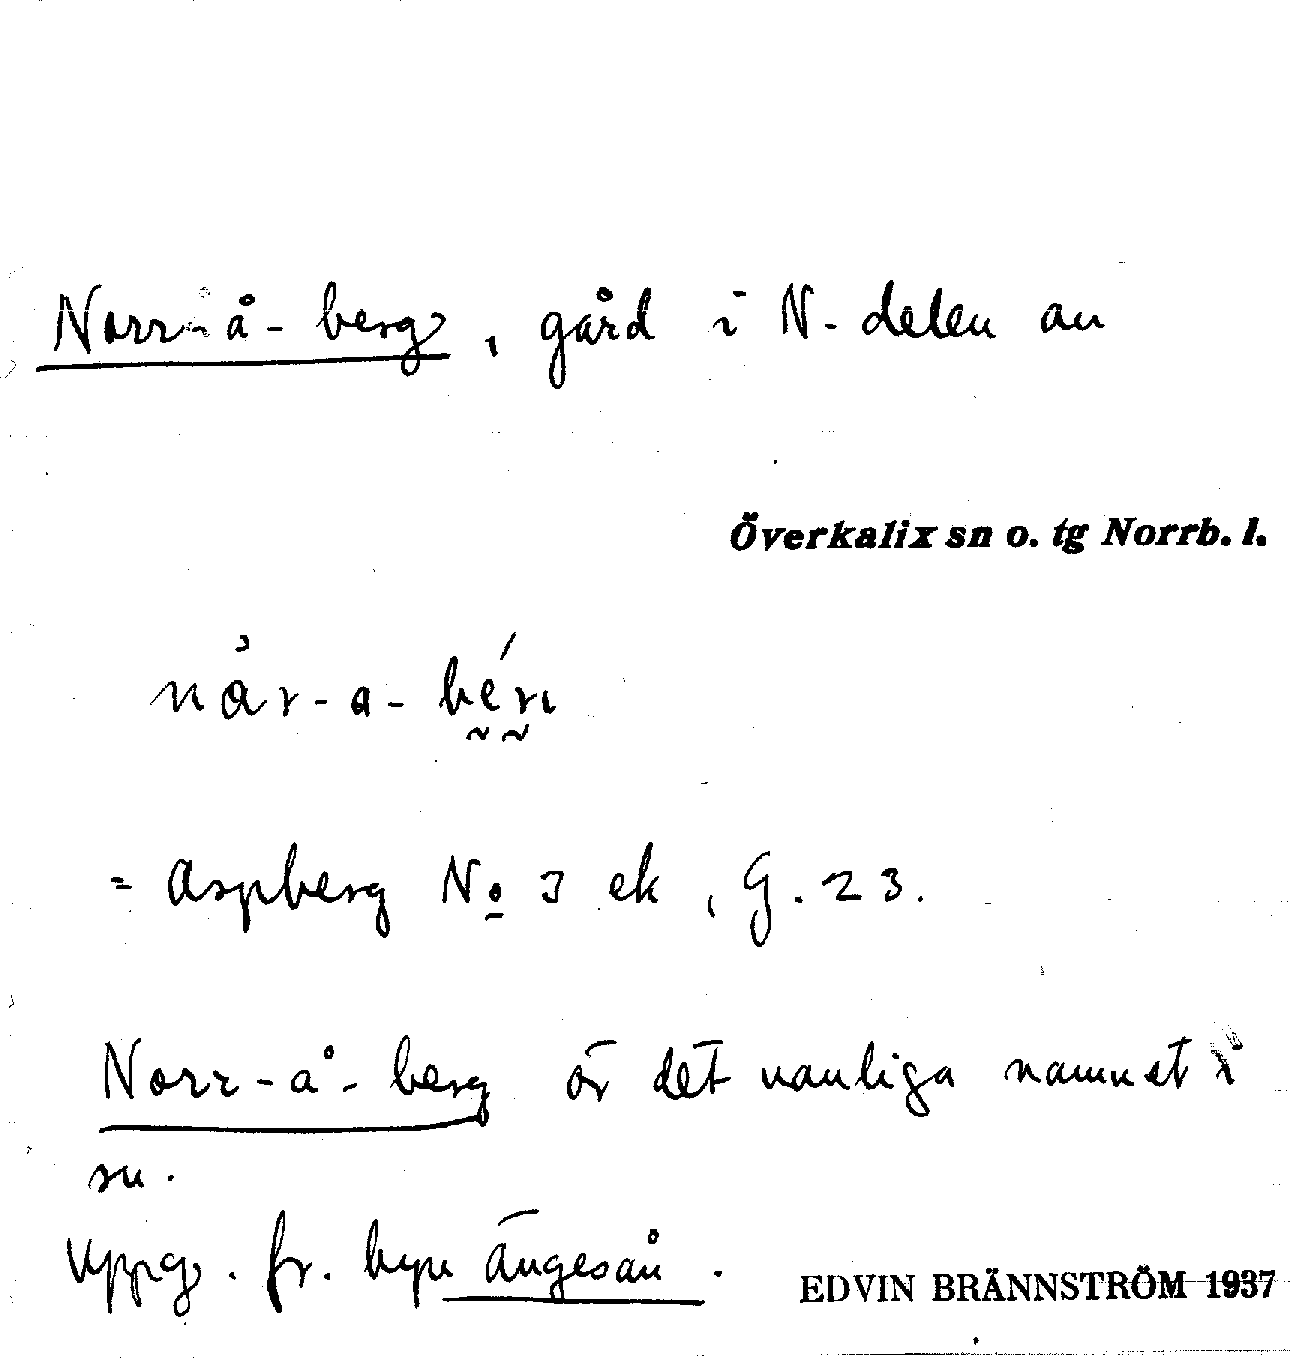 Norr-å-berg, gård i N-delen av
Överkalix sn o. tg Norrb. l.
når-a-bérı
= Aspberg No 3 ek, G. 23.
Norr-å-berg är det vanliga namnet i
sn.
Uppg. fr. byn Ängeså.
EDVIN BRÄNNSTRÖM 1937